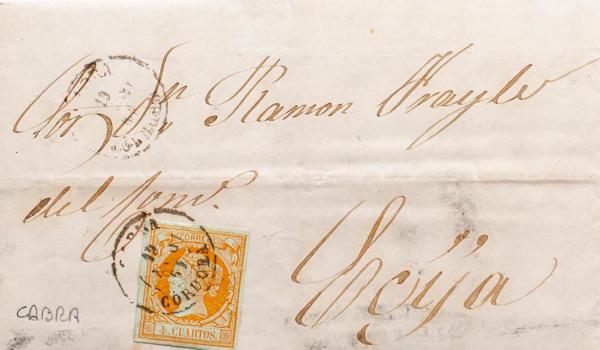 Sor. Dn Ramon Frayle
del Como.
Ecija
CORREOS
CORDOBA
4 CUARTOS.
CABRA